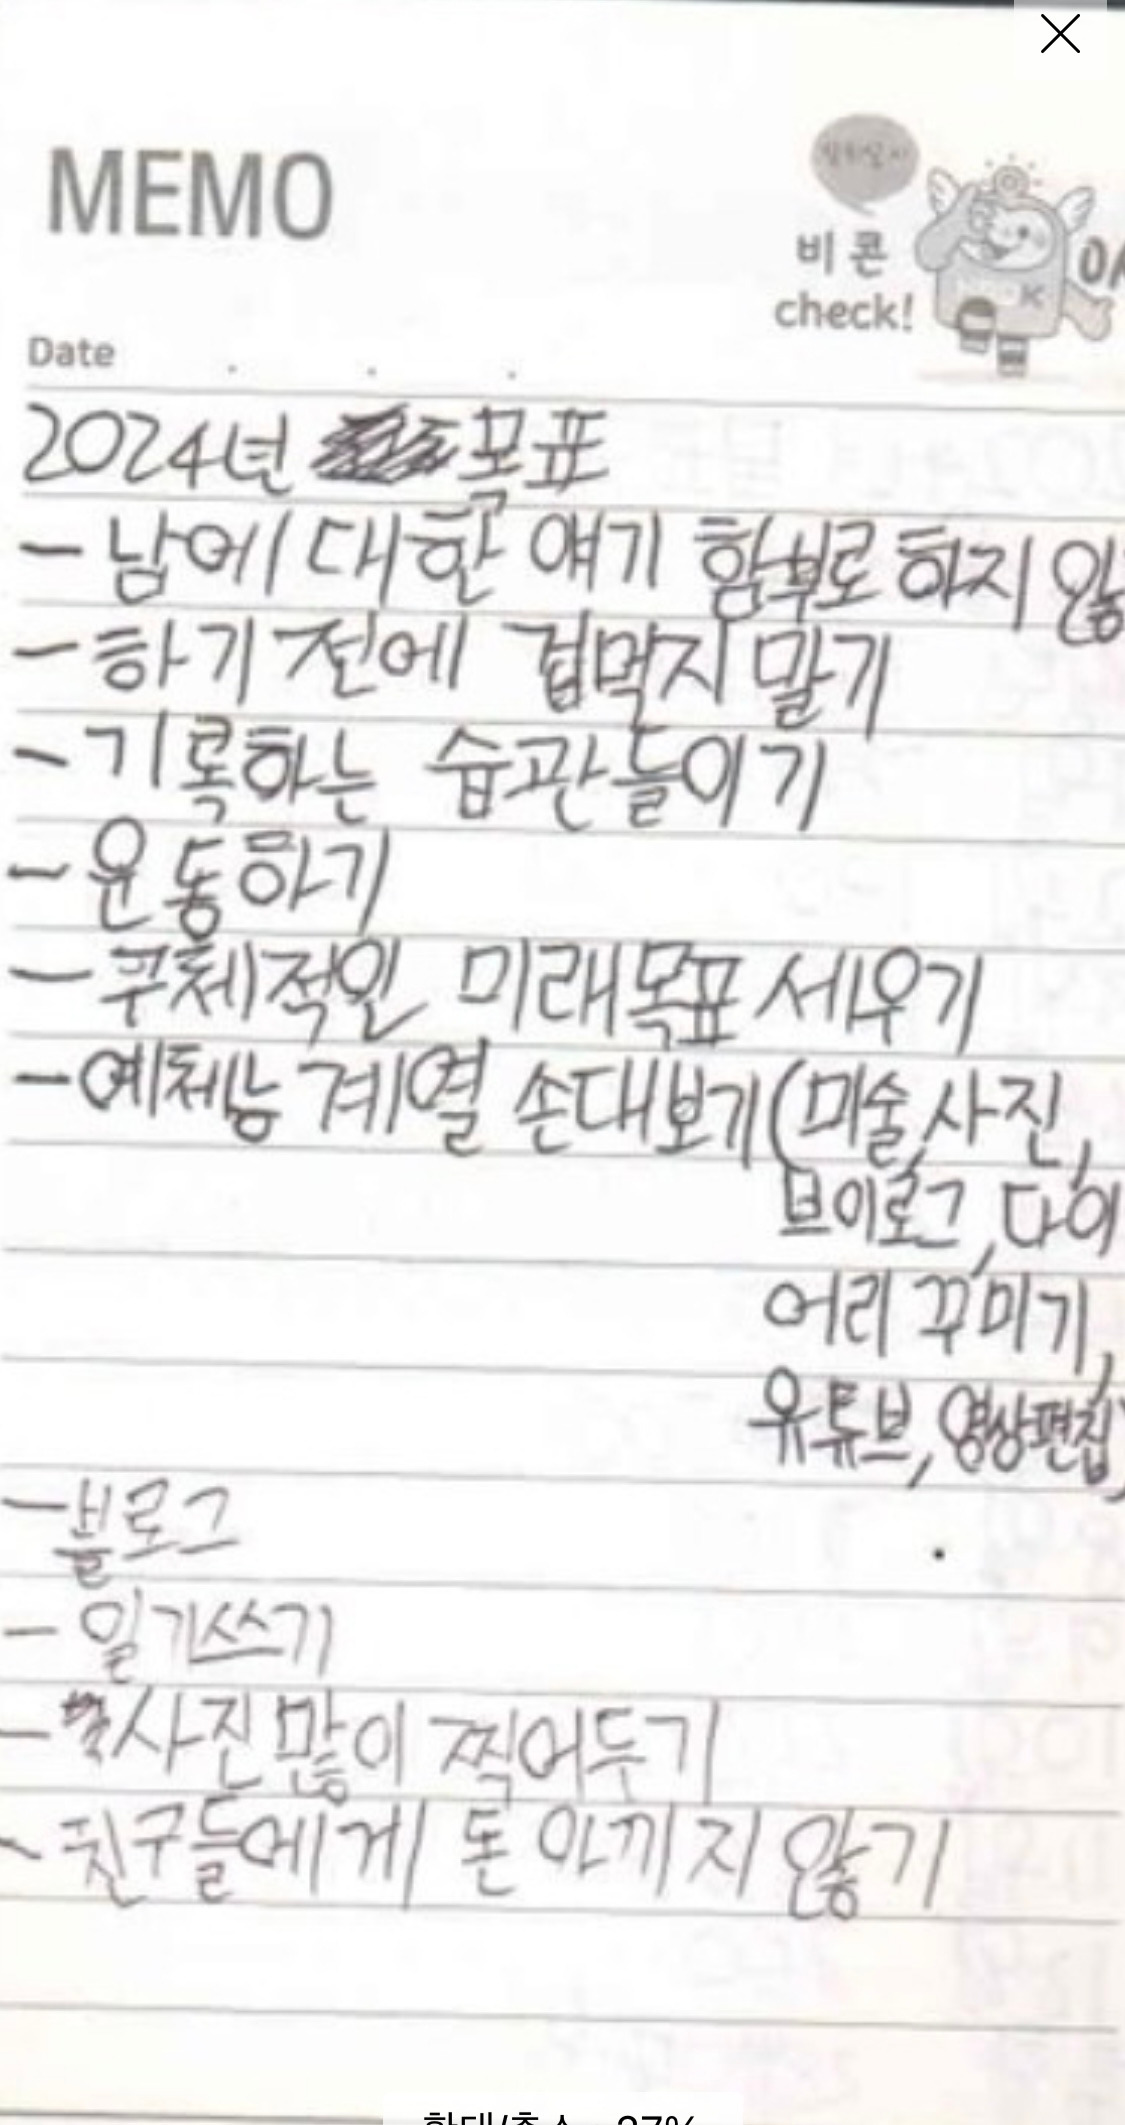 MEMO
비콘
check!
Date
2024년 목표
- 남에 대한 얘기 함부로 하지 않
- 하기 전에 겁먹지 말기
- 기록하는 습관들이기
- 운동하기
- 구체적인 미래목표 세우기
- 예체능 계열 손대보기(미술,사진,
브이로그,다이
어리 꾸미기,
유튜브,영상편집)
- 블로그
- 일기쓰기
- 사진 많이 찍어두기
- 친구들에게 돈 아끼지 않기